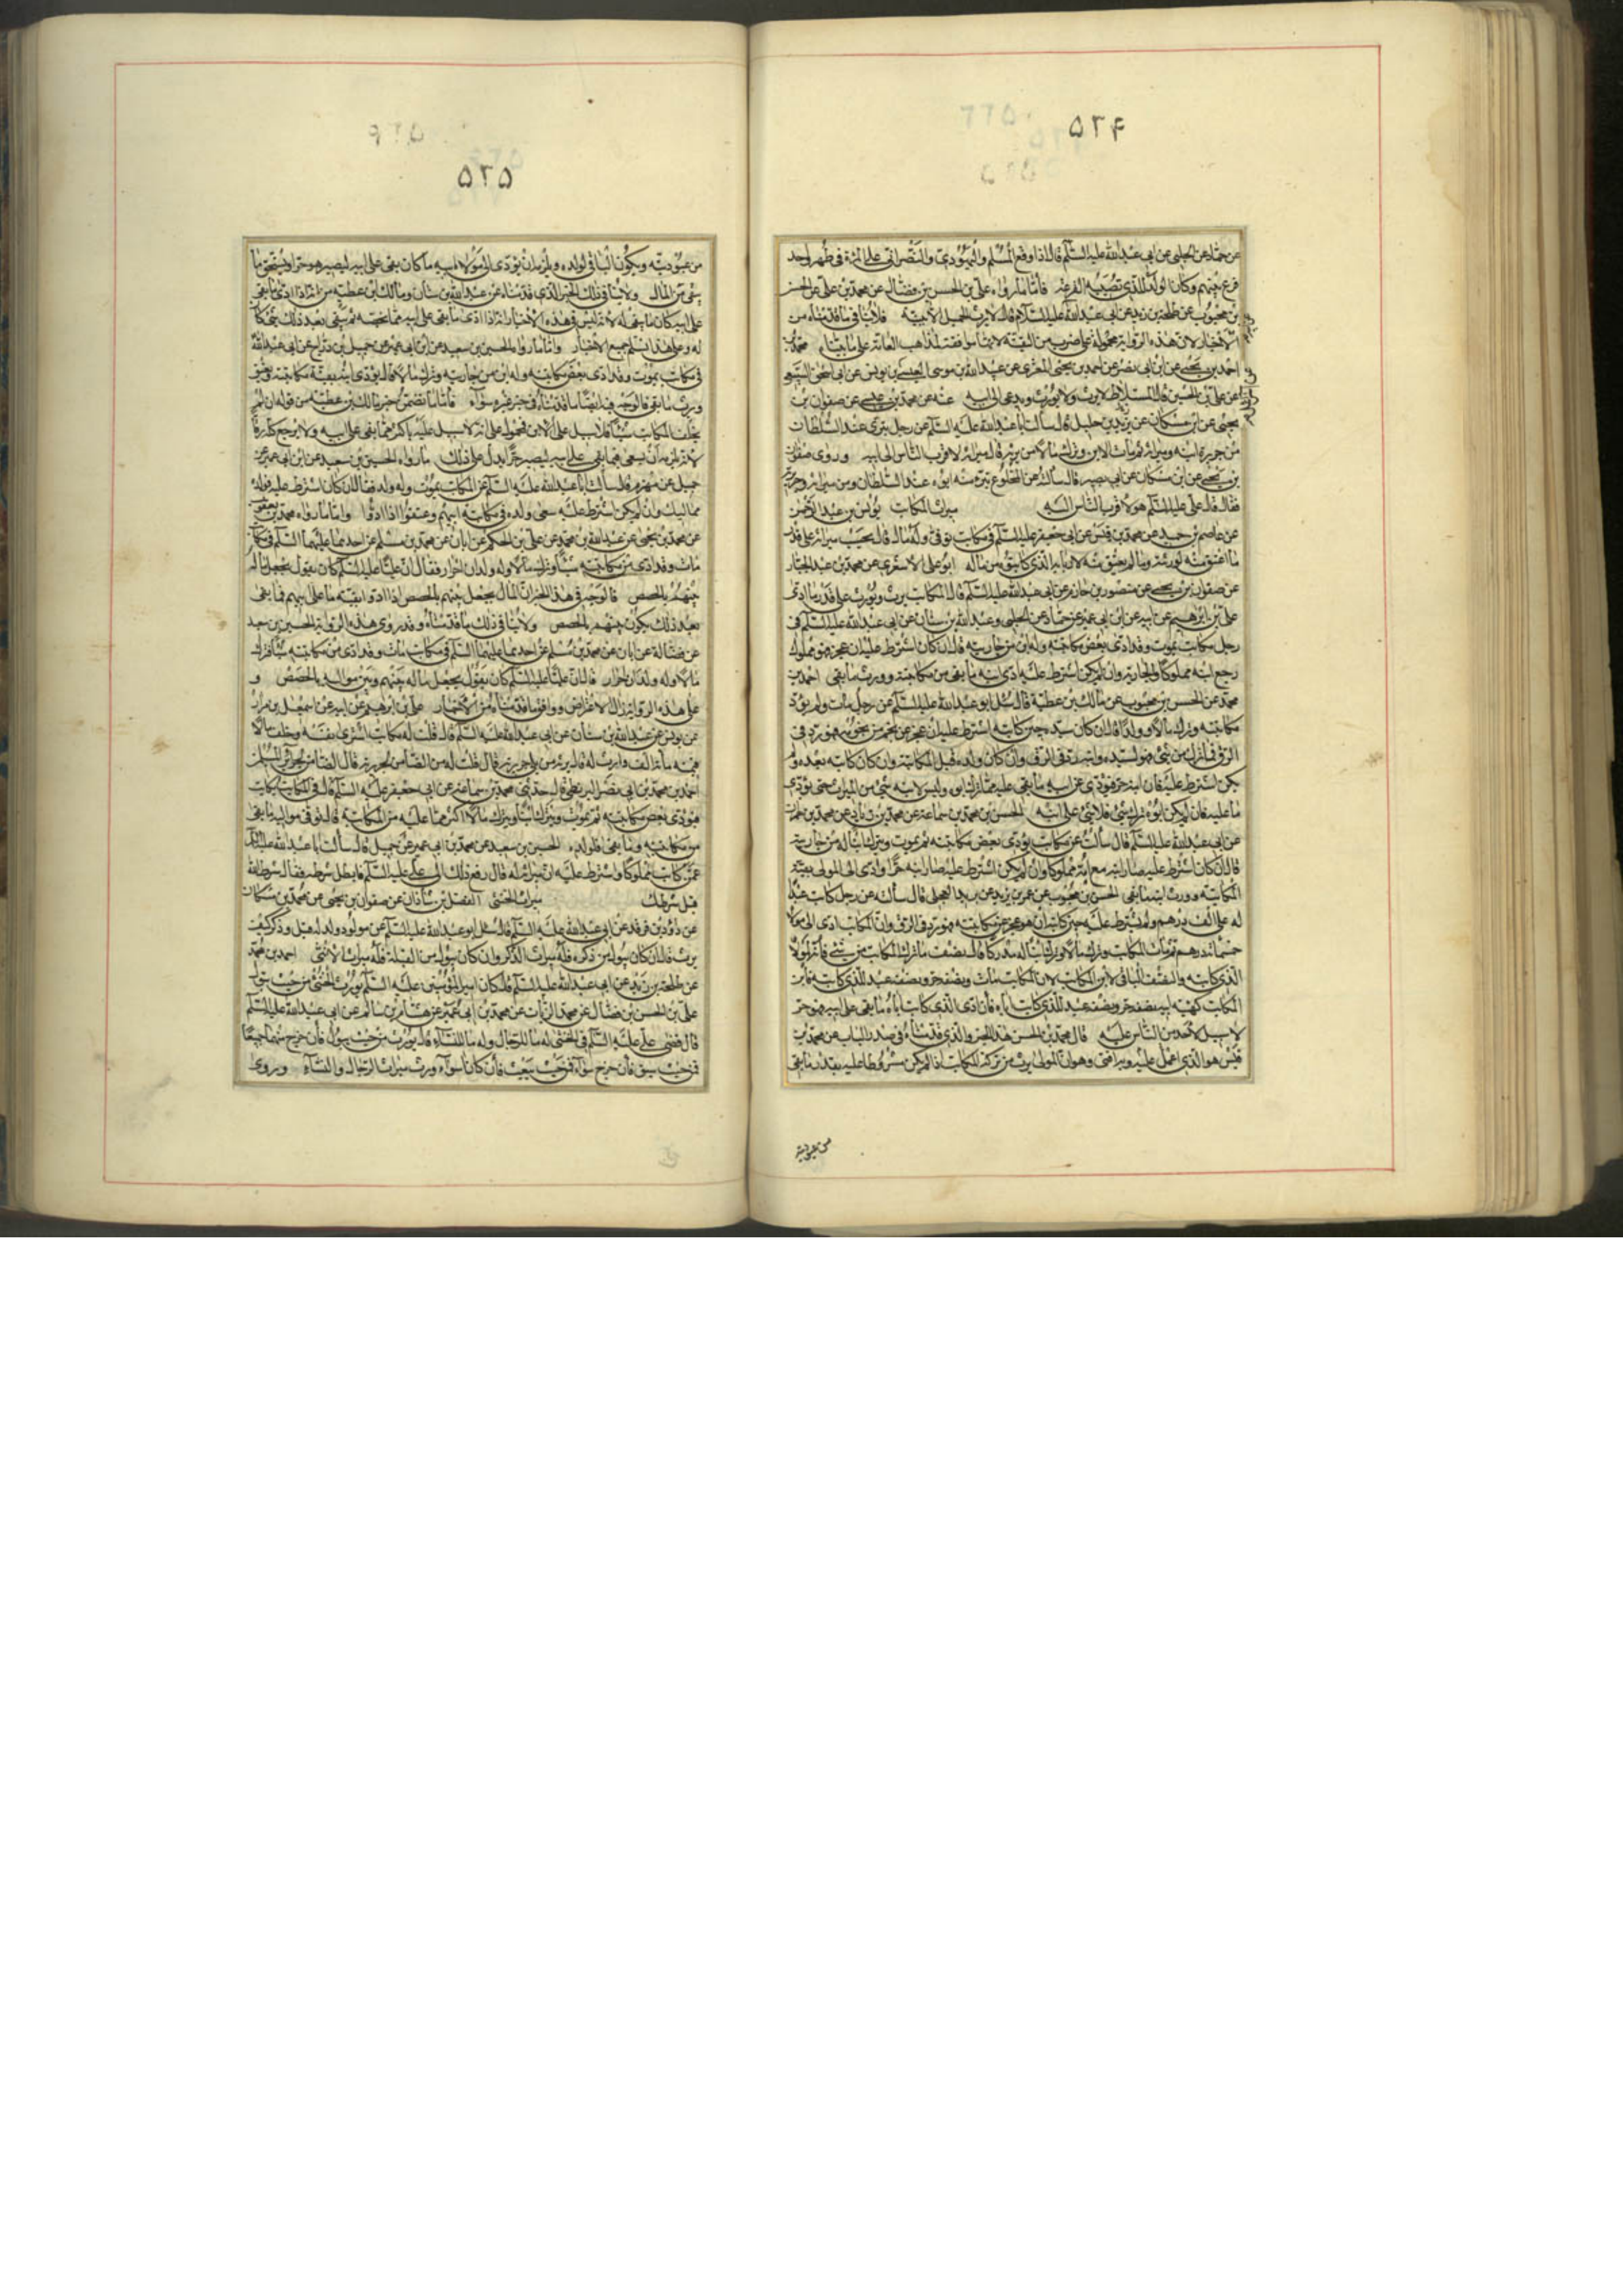 ۵۲۴
عن حماد عن الحلبي عن ابي عبد الله عليه السلام قال اذا وقع المسلم واليهودي والنصراني على المرأة في طهر واحد
قرع بينهم وكان الولد للذي تصيبه القرعة فأما ما رواه علي بن الحسن بن فضال عن محمد بن علي عن الحسن
بن محبوب عن طلحة بن زيد عن ابي عبد الله عليه السلام قال لا يرث الحميل الا ببينة فلا ينافي ما قدمناه من
الاخبار لان هذه الرواية محمولة على ضرب من التقية لانها موافقة لمذاهب العامة على ما بيناه محمد بن
احمد بن يحيى عن ابن ابي نصر عن احمد بن يحيى المقري عن عبيد الله بن موسى العبسي عن يونس عن ابي اسحق السبيعي
عن علي بن الحسين قال المستلاط لا يرث ولا يورث ويدعى الى ابيه عنه عن محمد بن عيسى عن صفوان بن
يحيى عن ابن مسكان عن يزيد بن خليل قال سألت ابا عبد الله عليه السلام عن رجل تبرى عند السلطان
من جريرة ابنه وميراثه ثم مات الابن وترك مالا من يرثه قال ميراثه لاقرب الناس الى ابيه وروى صفوان
بن يحيى عن ابن مسكان عن ابي بصير قال سألته عن المخلوع تبرء منه ابوه عند السلطان ومن ميراثه وجريرته
فقال قال علي عليه السلام هو لاقرب الناس اليه ميراث المكاتب يونس بن عبد الرحمن
عن عاصم بن حميد عن محمد بن قيس عن ابي جعفر عليه السلام في مكاتب توفي وله مال قال يحسب ميراثه على قدر
ما اعتق منه لورثته وما لم يعتق منه لاربابه الذي كاتبوه من ماله ابو علي الاشعري عن محمد بن عبد الجبار
عن صفوان بن يحيى عن منصور بن حازم عن ابي عبد الله عليه السلام قال المكاتب يرث ويورث على قدر ما ادى
علي بن ابراهيم عن ابيه عن ابن ابي عمير عن حماد عن الحلبي وعبد الله بن سنان عن ابي عبد الله عليه السلام في
رجل مكاتب يموت وقد ادى بعض مكاتبته وله ابن من جاريته قال ان كان اشترط عليه ان عجز فهو مملوك
رجع ابنه مملوكا والجارية وان لم يكن اشترط عليه ادى ابنه ما بقي من مكاتبته وورث ما بقي احمد بن
محمد عن الحسن بن محبوب عن مالك بن عطية قال سئل ابو عبد الله عليه السلام عن رجل مات ولم يؤد
مكاتبته وترك مالا وولدا قال ان كان سيده حين كاتبه اشترط عليه ان عجز عن نجم من نجومه فهو رد في
الرق فما ترك من شئ فهو لسيده وابنه رد في الرق وان كان ولده قبل المكاتبة وان كان كاتبه بعده ولم
يكن اشترط عليه فان ابنه حر فيؤدي عن ابيه ما بقي عليه مما ترك ابوه وليس لابنه شئ من الميراث حتى يؤدي
ما عليه فان لم يكن ابوه ترك شئ فلا شئ على ابنه الحسن بن محمد بن سماعة عن محمد بن زياد عن محمد بن حمران
عن ابي عبد الله عليه السلام قال سألته عن مكاتب يؤدي بعض مكاتبته ثم يموت ويترك ابنا له من جاريته
قال ان كان اشترط عليه صار ابنه مع امه مملوكا وان لم يكن اشترط عليه صار ابنه حرا وادى الى المولى بقية
المكاتبة وورث ابنه ما بقي الحسن بن محبوب عن عمر بن يزيد عن بريد العجلي قال سألته عن رجل كاتب عبدا
له على الف درهم ولم يشترط عليه حين كاتبه ان هو عجز عن مكاتبته فهو رد في الرق وان المكاتب ادى الى مولاه
خمسمائة درهم ثم مات المكاتب وترك مالا وترك ابنا له مدركا قال نصف ما ترك المكاتب من شئ فانه لمولاه
الذي كاتبه والنصف الباقي لابن المكاتب لان المكاتب مات ونصفه حر ونصفه عبد للذي كاتبه فابن
المكاتب كهيئة ابيه نصفه حر ونصفه عبد للذي كاتب اباه فان ادى الذي كاتب اباه ما بقي على ابيه فهو حر
لا سبيل لاحد من الناس عليه قال محمد بن الحسن هذا الخبر والذي قدمناه في صدر الباب عن محمد بن
قيس هو الذي اعمل عليه وبه افتي وهو ان المولى يرث من تركة المكاتب اذا لم يكن مشروطا عليه بقدر ما بقي
من عبوديته
۵۲۵
من عبوديته ويكون الباقي لولده ويلزمه ان يؤدي الى مولا ابيه ما كان بقي على ابيه ليصير هو حرا ويستحق ما
بقي من المال ولا ينافي ذلك الخبر الذي قدمناه عن عبد الله بن سنان ومالك بن عطية من انه اذا ادى ما بقي
على ابيه كان ما بقي له لانه ليس في هذه الاخبار انه اذا ادى ما بقي على ابيه مما يخصه ثم يبقى بعد ذلك شئ كان
له وعلى هذا تسلم جميع الاخبار واما ما رواه الحسين بن سعيد عن ابن ابي عمير عن جميل بن دراج عن ابي عبد الله
في مكاتب يموت وقد ادى بعض مكاتبته وله ابن من جاريته وترك مالا قال يؤدي ابنه بقية مكاتبته ويعتق
ويرث ما بقي فالوجه فيه ايضا ما قدمناه في خبر غيره سواء فأما ما تضمن خبر مالك بن عطية من قوله ان لم
يخلف المكاتب شيئا فلا سبيل على الابن فمحمول على انه لا سبيل عليه باكثر مما بقي على ابيه ولا يرجع كله رقا
لانه يلزمه ان يسعى فيما بقي على ابيه ليصير حرا يدل على ذلك ما رواه الحسين بن سعيد عن ابن ابي عمير عن
جميل عن مهزم قال سألت ابا عبد الله عليه السلام عن المكاتب يموت وله ولد فقال ان كان اشترط عليه فولده
مماليك وان لم يكن اشترط عليه سعى ولده في مكاتبة ابيهم وعتقوا اذا ادوا واما ما رواه محمد بن يعقوب
عن محمد بن يحيى عن عبد الله بن محمد عن علي بن الحكم عن ابان عن محمد بن مسلم عن احدهما عليهما السلام في مكاتب
مات وقد ادى من مكاتبته شيئا وترك مالا وله ولدان احرار فقال ان عليا عليه السلام كان يقول يجعل ماله
بينهم بالحصص فالوجه في هذا الخبر ان المال يجعل بينهم بالحصص اذا ادوا بقية ما على ابيهم فما بقي
بعد ذلك يكون بينهم بالحصص ولا ينافي ذلك ما قدمناه وقد روى هذه الرواية الحسين بن سعيد
عن فضالة عن ابان عن محمد بن مسلم عن احدهما عليهما السلام في مكاتب مات وقد ادى من مكاتبته شيئا فترك
مالا وله ولدان احرار قال ان عليا عليه السلام كان يقول يجعل ماله بينهم وبين مواليه بالحصص و
على هذه الرواية زال الاعتراض ووافق ما قدمناه من الاخبار علي بن ابراهيم عن ابيه عن اسمعيل بن مرار
عن يونس عن عبد الله بن سنان عن ابي عبد الله عليه السلام قال قلت له مكاتب اشترى نفسه وخلف مالا
قيمته مائة الف ولا وارث له قال يرثه من يلي جريرته قال قلت له من الضامن لجريرته قال الضامن لجرائر المسلمين
احمد بن محمد بن ابي نصر البزنطي قال حدثني محمد بن سماعة عن ابي جعفر عليه السلام قال في المكاتب يكاتب
فيؤدي بعض مكاتبته ثم يموت ويترك ابنا ويترك مالا اكثر مما عليه من المكاتبة قال يوفى مواليه ما بقي
من مكاتبته وما بقي فلولده الحسين بن سعيد عن محمد بن ابي عمير عن جميل قال سألت ابا عبد الله عليه السلام
عمن كاتب مملوكا واشترط عليه ان ميراثه له قال رفع ذلك الى علي عليه السلام فابطل شرطه فقال شرط الله
قبل شرطك ميراث الخنثى الفضل بن شاذان عن صفوان بن يحيى عن محمد بن مسكان
عن داود بن فرقد عن ابي عبد الله عليه السلام قال سئل ابو عبد الله عليه السلام عن مولود ولد له قبل وذكر كيف
يرث قال ان كان يبول من ذكره فله ميراث الذكر وان كان يبول من القبلة فله ميراث الانثى احمد بن محمد
عن طلحة بن زيد عن ابي عبد الله عليه السلام قال كان امير المؤمنين عليه السلام يورث الخنثى من حيث يبول
علي بن الحسن بن فضال عن محمد الزيات عن محمد بن ابي عمير عن هشام بن سالم عن ابي عبد الله عليه السلام
قال قضى علي عليه السلام في الخنثى له ما للرجال وله ما للنساء قال يورث من حيث يبول فان خرج منهما جميعا
فمن حيث سبق فان خرج سواء فمن حيث ينبعث فان كانا سواء ورث ميراث الرجال والنساء وروى